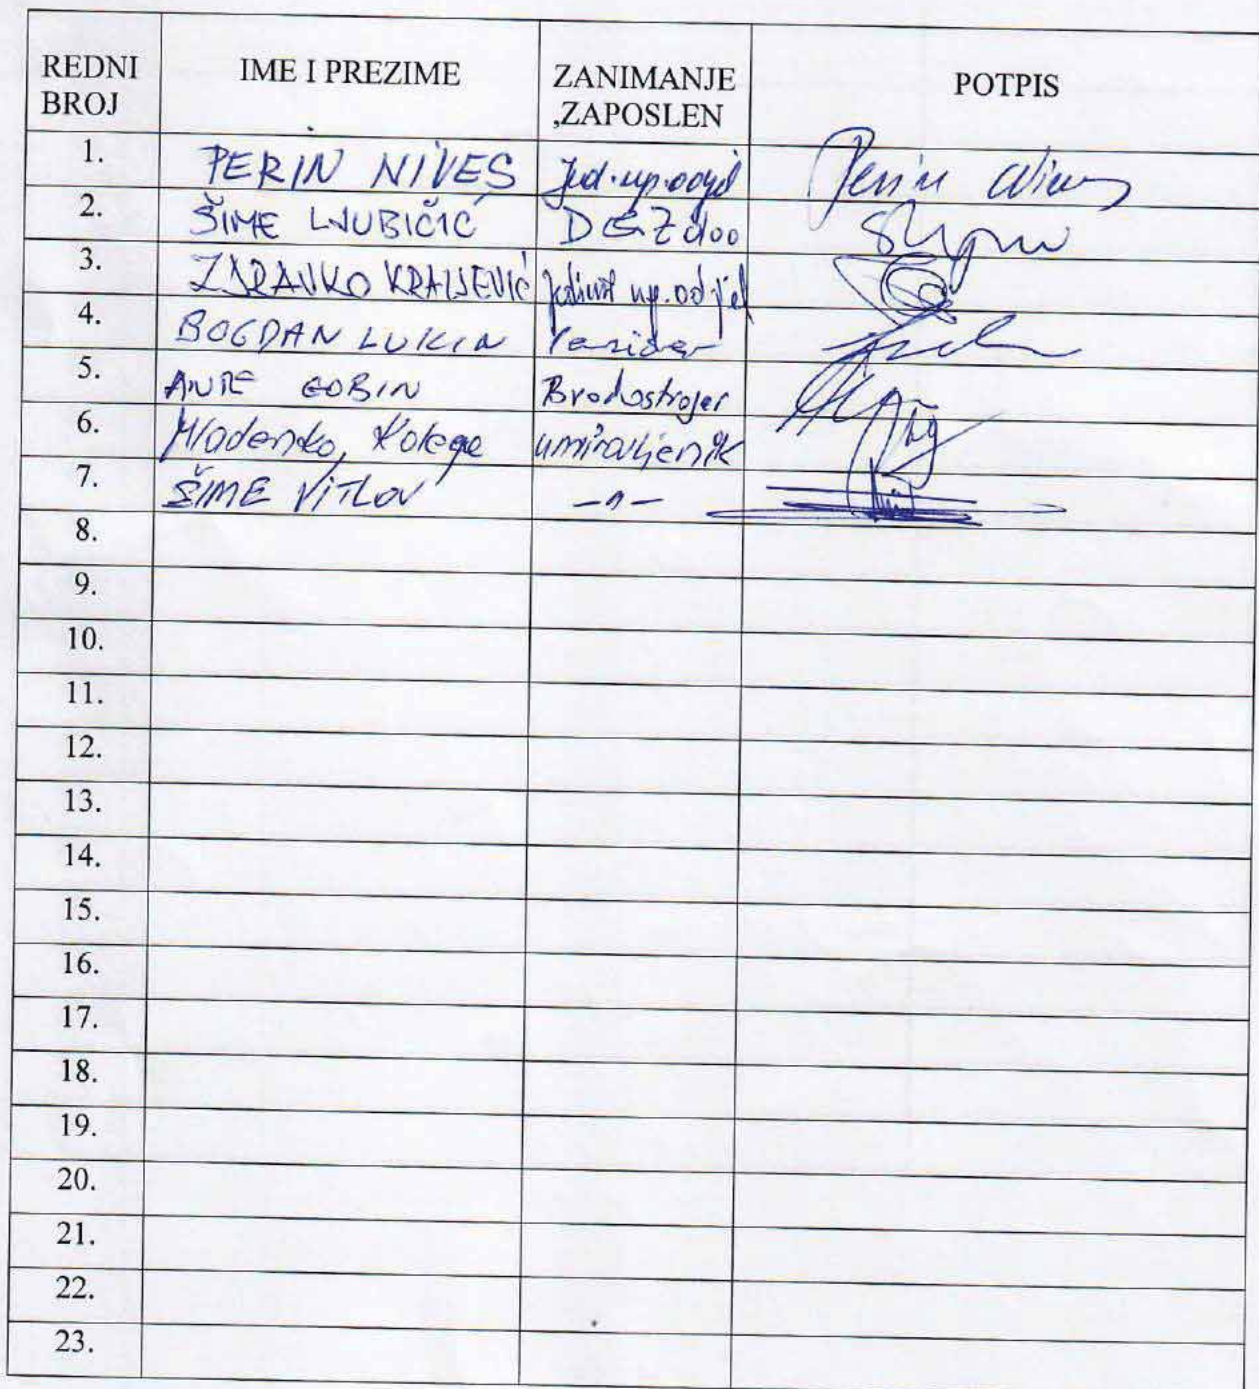 REDNI BROJ IME I PREZIME ZANIMANJE ,ZAPOSLEN POTPIS
1. PERIN NIVES Jed.up.odjel Perin Nives
2. ŠIME LJUBIČIĆ DGZ doo
3. ZDRAVKO KRALJEVIĆ up.odjel
4. BOGDAN LUKIN
5. ANTE GOBIN Brodostrojar
6. Mladenko, Kolega umirovljenik
7. ŠIME VITLOV -"-
8.
9.
10.
11.
12.
13.
14.
15.
16.
17.
18.
19.
20.
21.
22.
23.